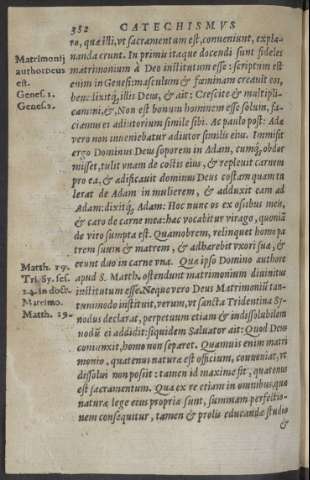 382 CATECHISMVS
ro, quæ isti, vt sacramentum est, conueniunt, expla-
nanda erunt. In primis itaque docendi sunt fideles
Matrimonij
authorDeus
est.
Genes. 1.
Genes. 2.
matrimonium à Deo institutum esse: scriptum est
enim in Genesi: masculum & fœminam creauit eos,
benedixitq́; illis Deus, & ait: Crescite & multipli-
camini. &, Non est bonum hominem esse solum, fa-
ciamus ei adiutorium simile sibi. Ac paulo post: Adæ
vero non inueniebatur adiutor similis eius. Immisit
ergo Dominus Deus soporem in Adam, cumq́; obdor
misset, tulit vnam de costis eius, & repleuit carnem
pro ea, & ædificauit dominus Deus costam quam tu
lerat de Adam in mulierem, & adduxit eam ad
Adam: dixitq́; Adam: Hoc nunc os ex ossibus meis,
& caro de carne mea: hæc vocabitur virago, quoniã
de viro sumpta est. Quamobrem, relinquet homo pa
trem suum & matrem, & adhærebit vxori suæ, &
erunt duo in carne vna. Quæ ipso Domino authore
Matth. 19.
Tri. Sy. ses.
24. in doct.
Matrimo.
Matth. 19.
apud S. Matth. ostendunt matrimonium diuinitus
institutum esse. Neque vero Deus Matrimoniũ tan-
tummodo instituit, verum, vt sancta Tridentina Sy-
nodus declarat, perpetuum etiam & indissolubilem
nodũ ei addidit: siquidem Saluator ait: Quod Deus
coniunxit, homo non separet. Quamuis enim matri
monio, quatenus naturæ est officium, conueniat, vt
dissolui non possit: tamen id maxime fit, quatenus
est sacramentum. Qua ex re etiam in omnibus, quæ
naturæ lege eius propria sunt, summam perfectio-
nem consequitur, tamen & prolis educandæ studio
&